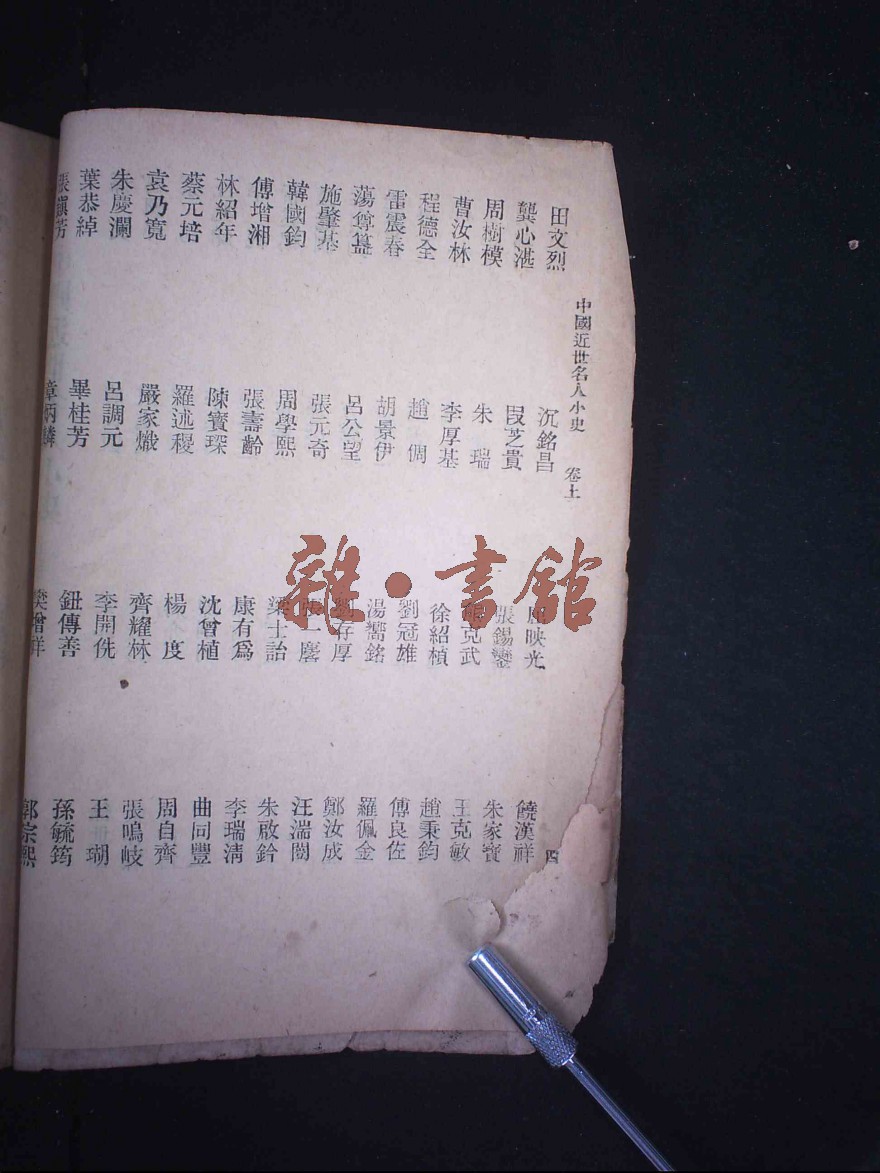 中國近世名人小史 卷上 四
田文烈 沉銘昌 屈映光 饒漢祥
龔心湛 段芝貴 張錫鑾 朱家寶
周樹模 朱瑞 克武 王克敏
曹汝林 李厚基 徐紹楨 趙秉鈞
程德全 趙倜 劉冠雄 傅良佐
雷震春 胡景伊 湯嚮銘 羅佩金
蕩尊簋 呂公望 劉存厚 鄭汝成
施肇基 張元奇 張一麐 汪湍
韓國鈞 周學熙 梁士詒 朱啟鈐
傅增湘 張壽齡 康有爲 李瑞清
林紹年 陳寶琛 沈曾植 曲同豐
蔡元培 羅述稷 楊度 周自齊
袁乃寬 嚴家熾 齊耀林 張鳴岐
朱慶瀾 呂調元 李開侁 王瑚
葉恭綽 畢桂芳 鈕傳善 孫毓筠
張鎮芳 章炳麟 樊增祥 郭宗熙
雜·書館